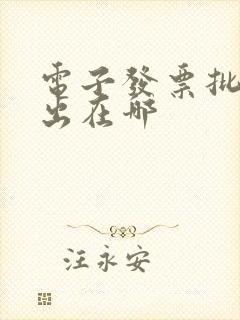 電子發票批
出在哪
汪永安